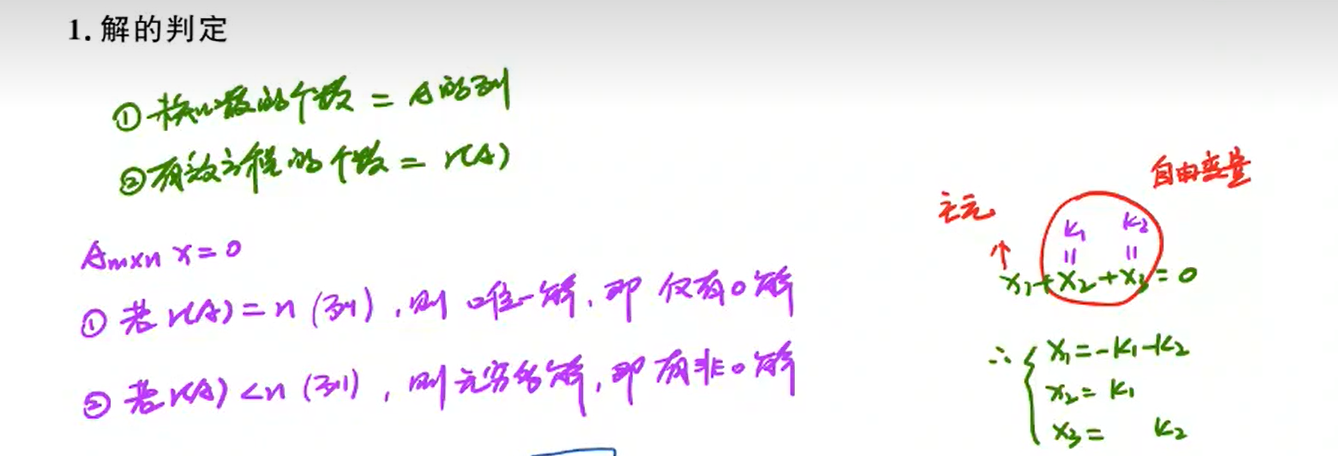 1. 解的判定
① 未知数的个数 = A的列
② 有效方程的个数 = r(A)
Am×n x = 0
① 若 r(A) = n (列), 则 唯一解, 即 仅有0解
② 若 r(A) < n (列), 则无穷多解, 即有非0解
自由变量
主元
k₁ k₂
↑ || ||
x₁+x₂+x₃=0
∴ { x₁=-k₁-k₂
x₂= k₁
x₃= k₂